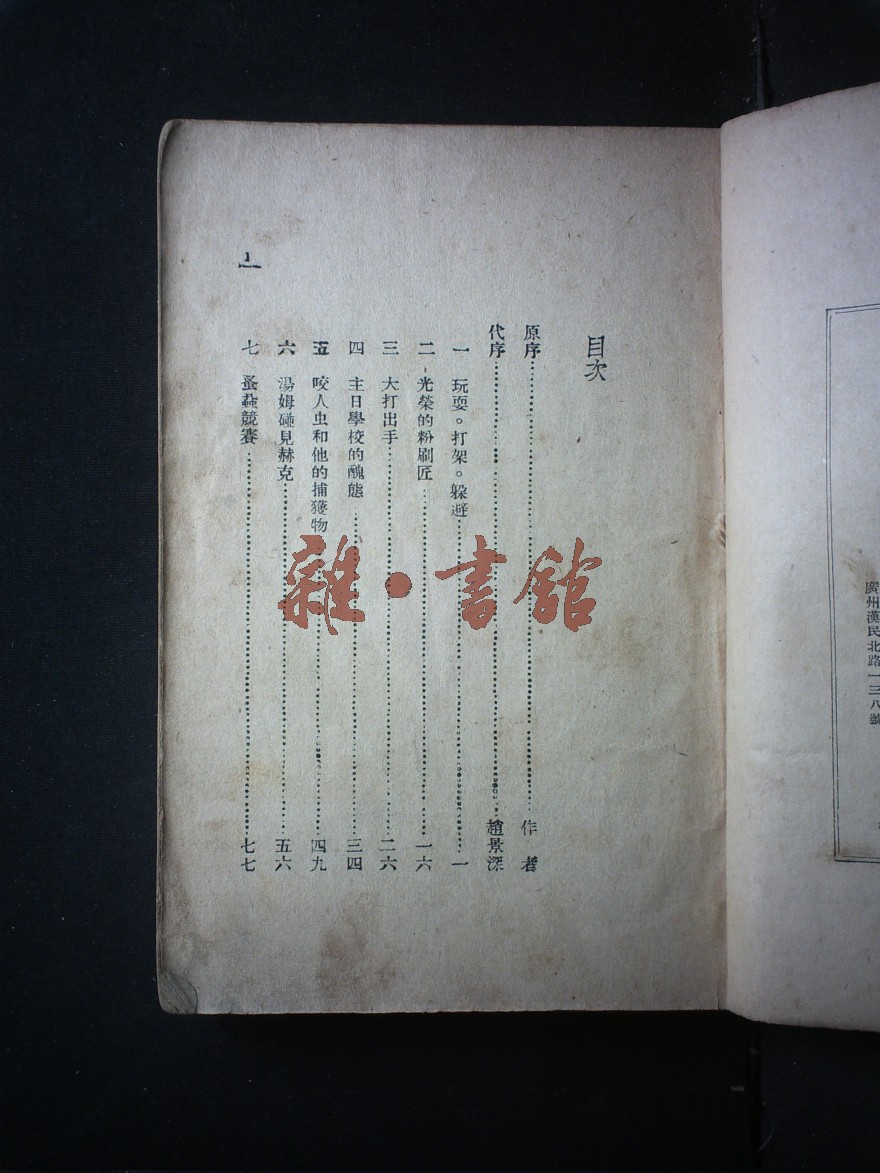 目次
原序 作者
代序 趙景深
一 玩耍。打架。躲避 一
二 光榮的粉刷匠 一六
三 大打出手 二六
四 主日學校的醜態 三四
五 咬人虫和他的捕獲物 四九
六 湯姆碰見赫克 五六
七 蚤蝨競賽 七七
1
雜·書館
廣州漢民北路一三八號